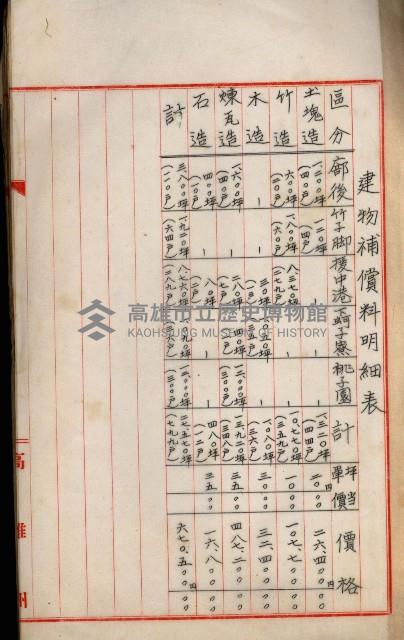 建物補償料明細表
區分 廍後 竹子脚 援中港 下蚵子寮 桃子園 計 坪當單價 價格
土塊造 一、二〇〇坪(四〇戶) 一二〇坪(四戶) 、 、 、 一、三二〇坪(四四戶) 二〇円〇〇 二六、四〇〇円
竹造 六〇〇坪(二〇戶) 一、八〇〇坪(六〇戶) 八、三七〇坪(二七九戶) 、 、 一〇、七七〇坪(三五九戶) 一〇〇〇 一〇七、七〇〇
木造 、 、 三〇坪(一戶) 一、〇五〇坪(三五戶) 、 一、〇八〇坪(三六戶) 三〇〇〇 三二、四〇〇
煉瓦造 一、六〇〇坪(四〇戶) 、 二八〇坪(七戶) 四〇坪(一戶) 一二、〇〇〇坪(三〇〇戶) 一三、九二〇坪(三四八戶) 三五〇〇 四八七、二〇〇
石造 四〇〇坪(一〇戶) 、 八〇坪(二戶) 、 、 四八〇坪(一二戶) 三五〇〇 一六、八〇〇
計 三、八〇〇坪(一一〇戶) 一、九二〇坪(六四戶) 八、七六〇坪(二八九戶) 一、〇九〇坪(三六戶) 一二、〇〇〇坪(三〇〇戶) 二七、五七〇坪(七九九戶) 六七〇、五〇〇
高雄州
高雄市立歷史博物館
KAOHSIUNG MUSEUM OF HISTORY